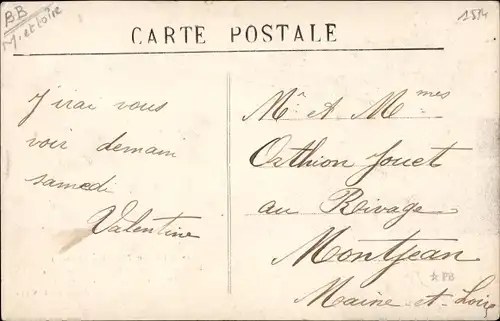 BB
M. et Loire
1514
CARTE POSTALE
J'irai vous
voir demain
samedi
Valentine
Mr et Mmes
Osthion Jouet
au Rivage
Montjean
PB
Maine-et-Loire